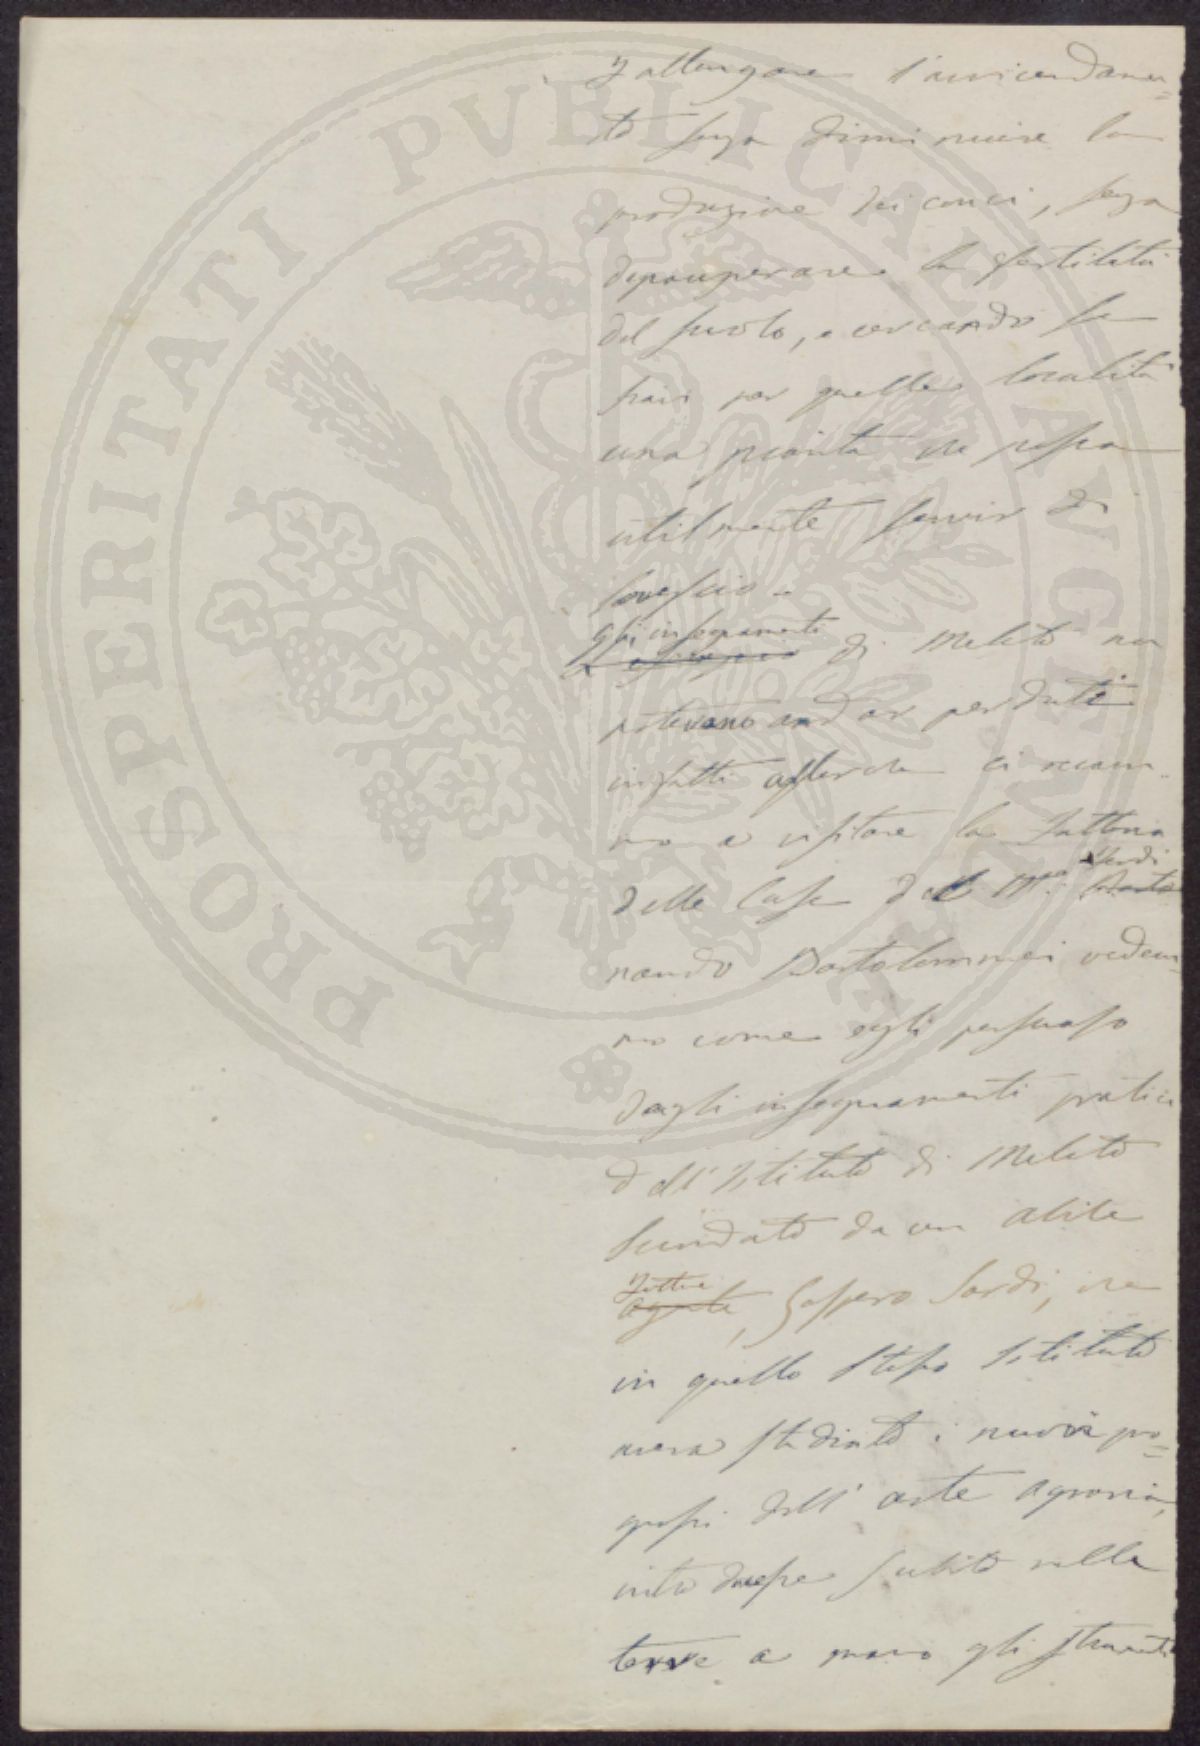 d'allungare l'avvicendamen=
to senza diminuire la
produzione dei conci, senza
depauperare la fertilità
del suolo, e cercando se
siavi per quelle località
una pianta che possa
utilmente servir di
sovescio.
Gli insegnamenti
di Meleto non
potevano andar perduti
infatti allorche ci recam=
mo a visitare la Fattoria
delle Case del M.se Ferdi
nando Bartolommei vedem=
mo come egli persuaso
dagli insegnamenti pratici
dell'Istituto di Meleto
secondato da un abile
Gaspero Sardi, che
in quello stesso Istituto
aveva studiato i nuovi pro=
gressi dell'arte agraria,
introdusse subito nelle
terre a mano gli strumenti
PROSPERITATI PVBLICAE AVGENDAE